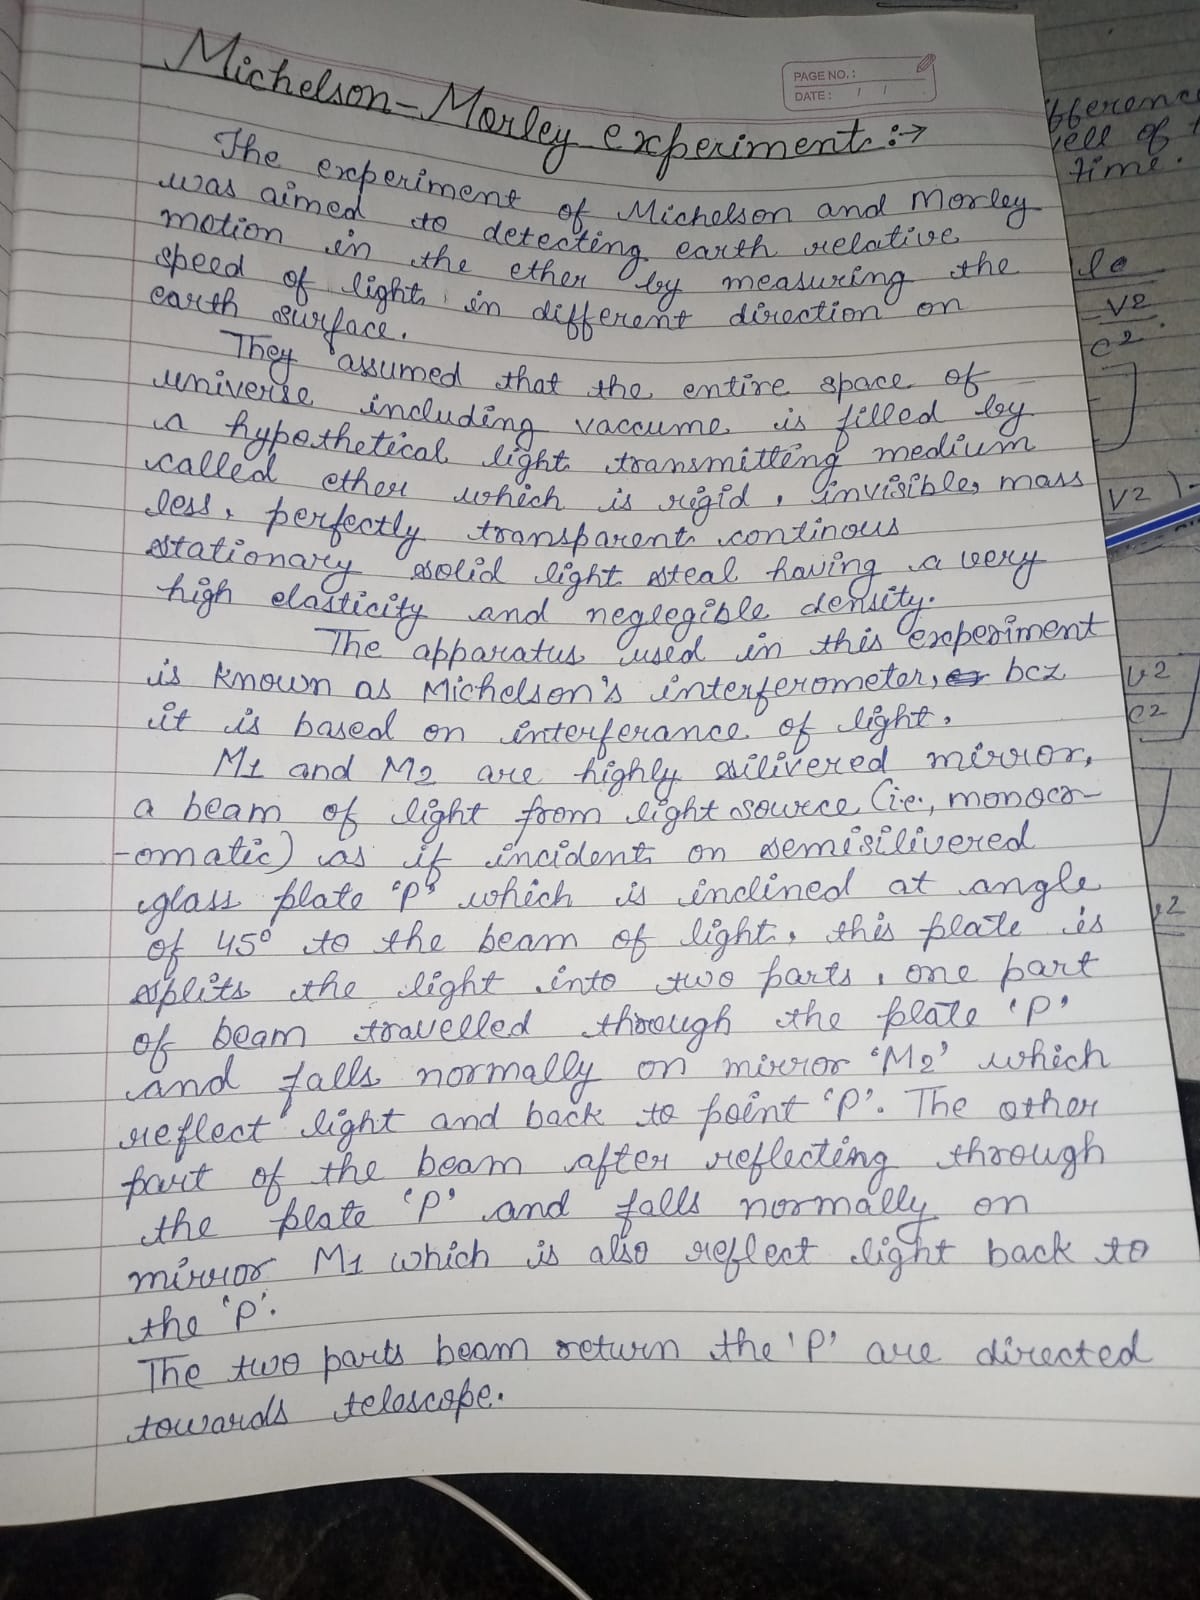 Michelson-Morley experiment :→
PAGE NO.:
DATE: / /
The experiment of Michelson and Morley
was aimed to detecting earth relative
motion in the ether by measuring the
speed of light in different direction on
earth surface.
They assumed that the entire space of
universe including vaccume is filled by
a hypothetical light transmitting medium
called ether which is rigid, invisible, mass
less, perfectly transparent continous
stationary solid light steal having a very
high elasticity and neglegible density.
The apparatus used in this experiment
is known as Michelson's interferometer, bcz
it is based on interferance of light.
M1 and M2 are highly silivered mirror,
a beam of light from light source (i.e., monocr-
-omatic) as if incident on semisilivered
glass plate 'P' which is inclined at angle
of 45° to the beam of light, this plate is
splits the light into two parts, one part
of beam travelled through the plate 'P'
and falls normally on mirror 'M2' which
reflect light and back to point 'P'. The other
part of the beam after reflecting through
the plate 'P' and falls normally on
mirror M1 which is also reflect light back to
the 'P'.
The two parts beam return the 'P' are directed
towards telescope.
of t
time.
lo
V2
c2
V2
V2
c2
2